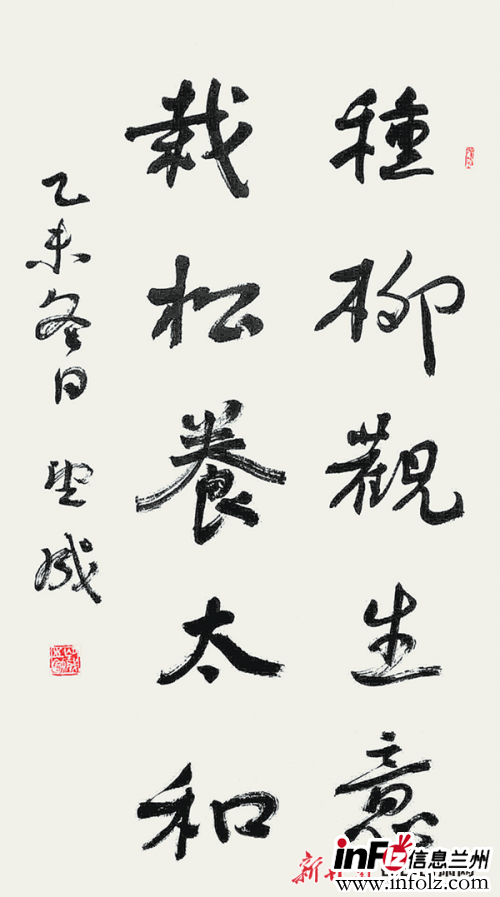 種柳觀生意
栽松養太和
乙未冬日
inFlz信息兰州
www.infolz.com